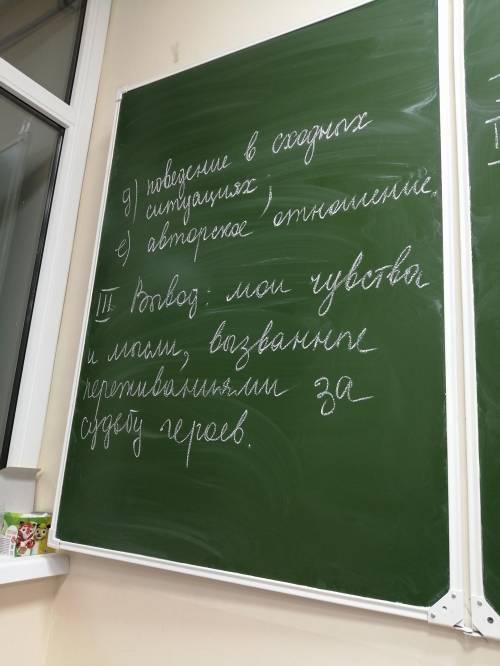 д) поведение в сходных
ситуациях;
е) авторское отношение.
III Вывод: мои чувства
и мысли, вызванные
переживаниями за
судьбу героев.